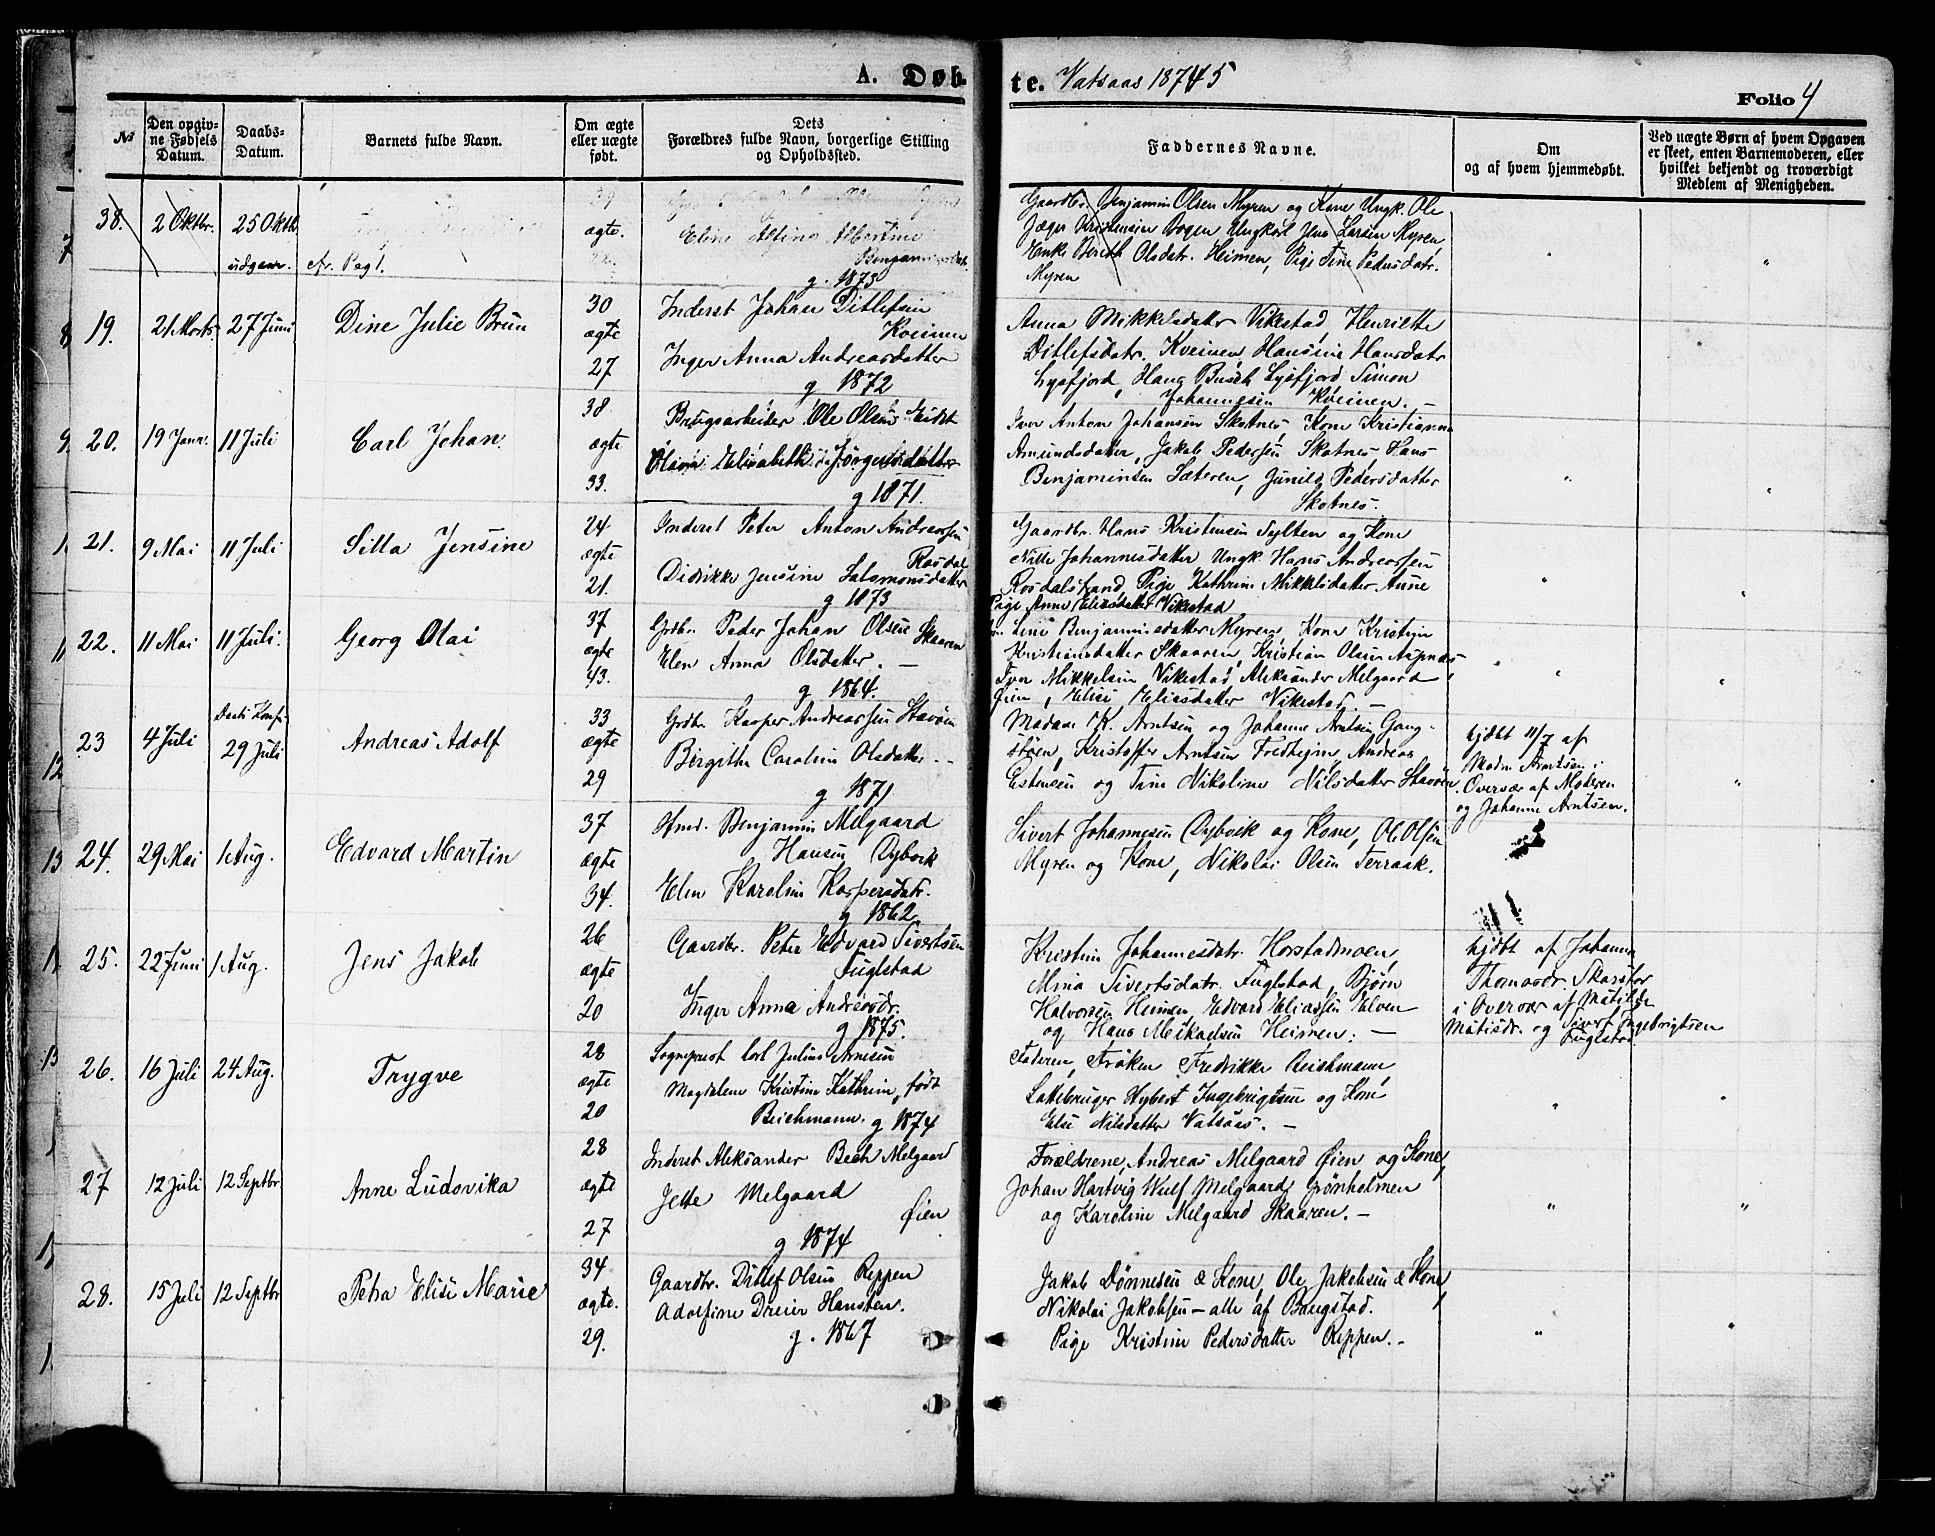 A. Døbte. Vatsaas 18745
Folio 4
№
Den opgivne Fødsels Datum.
Daabs-Datum.
Barnets fulde Navn.
Om ægte eller uægte født.
Dets Forældres fulde Navn, borgerlige Stilling og Opholdssted.
Faddernes Navne.
Om og af hvem hjemmedøbt.
Ved uægte Børn af hvem Opgaven er skeet, enten Barnemoderen, eller hvilket bekjendt og troværdigt Medlem af Menigheden.
38. 2 Oktbr. 25 Oktb. ægte.
Eline Albertine
Benjaminsdatr.
g. 1873
Gaardbr. Benjamin Olsen Myren og Kone Ungk. Ole
Jæger Kristensen Bogen Ungkarl Jens Larsen Myren
Enke Berith Olsdatr. Heimen, Pige Tine Pedersdatr.
Myren
19. 21 Marts. 27 Juni Dine Julie Brun
30 ægte 27
Inderst Johan Ditlefsen
Kveinen
Inger Anna Andreasdatter
g 1872
Anna Mikkelsdatter Vikestad, Henriette
Ditlefsdatr. Kveinen, Hansine Hansdatr
Lysfjord, Hans Busch Lysfjord Simon
Johannesen Kveinen. —
20. 19 Janr. 11 Juli Carl Johan.
38 ægte 33.
Brugsarbeider Ole Olsen Eidet
Elisabeth Jørgensdatter
g 1871.
Iver Anton Johansen Skotnes, Kone Kristianna
Amundsdatter, Jakob Pedersen Skotnes Hans
Benjaminsen Sæteren, Gunild Pedersdatter
Skotnes.
21. 9 Mai 11 Juli Silla Jensine
24 ægte 21.
Inderst Peter Anton Andreassen
Rosdal
Didrikke Jensine Salamonsdatter
g 1873
Gaardbr. Hans Kristensen Sylten og Kone
Nille Johannesdatter Ungk. Hans Andreassen
Rosdalstrand, Pige Kathrine Mikkelsdatter Anne
Pige Anne Eliasdatter Vikestad
22. 11 Mai 11 Juli. Georg Olai
37 ægte 43.
Grdbr. Peder Johan Olsen Skaaren
Elen Anna Olsdatter. —
g 1864.
Line Benjaminsdatter Myren, Kone Kristine
Kristiansdatter Skaaren, Kristian Olsen Aspnes
Iver Mikkelsen Vikestad, Aleksander Melgaard
Øien, Elise Eliasdatter Vikestad. —
23 4 Juli 29 Juli Andreas Adolf
33 ægte 29
Grdbr Kasper Andreassen Stavøen
Birgithe Caroline Olsdatter. —
g 1871
Madam K. Arntsen og Johanne Arntsen Gang-
støen, Kristoffer Arntsen Fredheim, Andreas
Estensen og Tine Nikoline Nilsdatter Stavøen.
hjdbt 11/7 af
Madm Arntsen i
Overvær af Moderen
og Johanne Arntsen.
24. 29 Mai 1 Aug. Edvard Martin
37 ægte 34.
Hmd. Benjamin Melgaard
Hansen Dybvik
Elen Karoline Kaspersdatr.
g 1862
Sivert Johannesen Dybvik og Kone, Ole Olsen
Myren og Kone, Nikolai Olsen Terraak.
25. 22 Juni 1 Aug. Jens Jakob
26 ægte 20
Gaardbr. Peter Edvard Sivertsen
Fuglstad
Inger Anna Andreasdr.
g 1875.
Kristine Johannesdatr. Horstadmoen,
Mina Sivertsdatr. Fuglstad, Bjørn
Halvorsen Heimen, Edvard Eliassen Elven
og Hans Mikaelsen Heimen. —
hjdbt af Johanna
Thomasdr. Skarstad
i Overvær af Matilde
Matisdr. og Sivert Ingebrigtsen
Fuglstad.
26. 16 Juli 24 Aug. Trygve
28 ægte 20
Sogneprest Carl Julius Arnesen
Magdalene Kristine Kathrine, født
Beichmann. g 1874
Faderen, Frøken Fredrikke Beichmann,
Ladebruger Hybert Ingebrigtsen og Kone
Else Nilsdatter Vatsaas. —
27 12 Juli 12 Septbr. Anne Ludovika
28 ægte 27
Inderst Aleksander Bech Melgaard
Jette Melgaard
Øien
g 1874
Forældrene, Andreas Melgaard Øien og Kone,
Johan Hartvig Wulf Melgaard, Grønholmen
og Karoline Melgaard Skaaren. —
28. 15 Juli 12 Septbr Petra Elise Marie
34 ægte. 29.
Gaardbr. Ditlef Olsen Reppen
Adolfine Dreier Hansten.
g. 1867
Jakob Dønnesen & Kone, Ole Jakobsen & Kone
Nikolai Jakobsen — alle af Bangstad.
Pige Kristine Pedersdatter Reppen. —